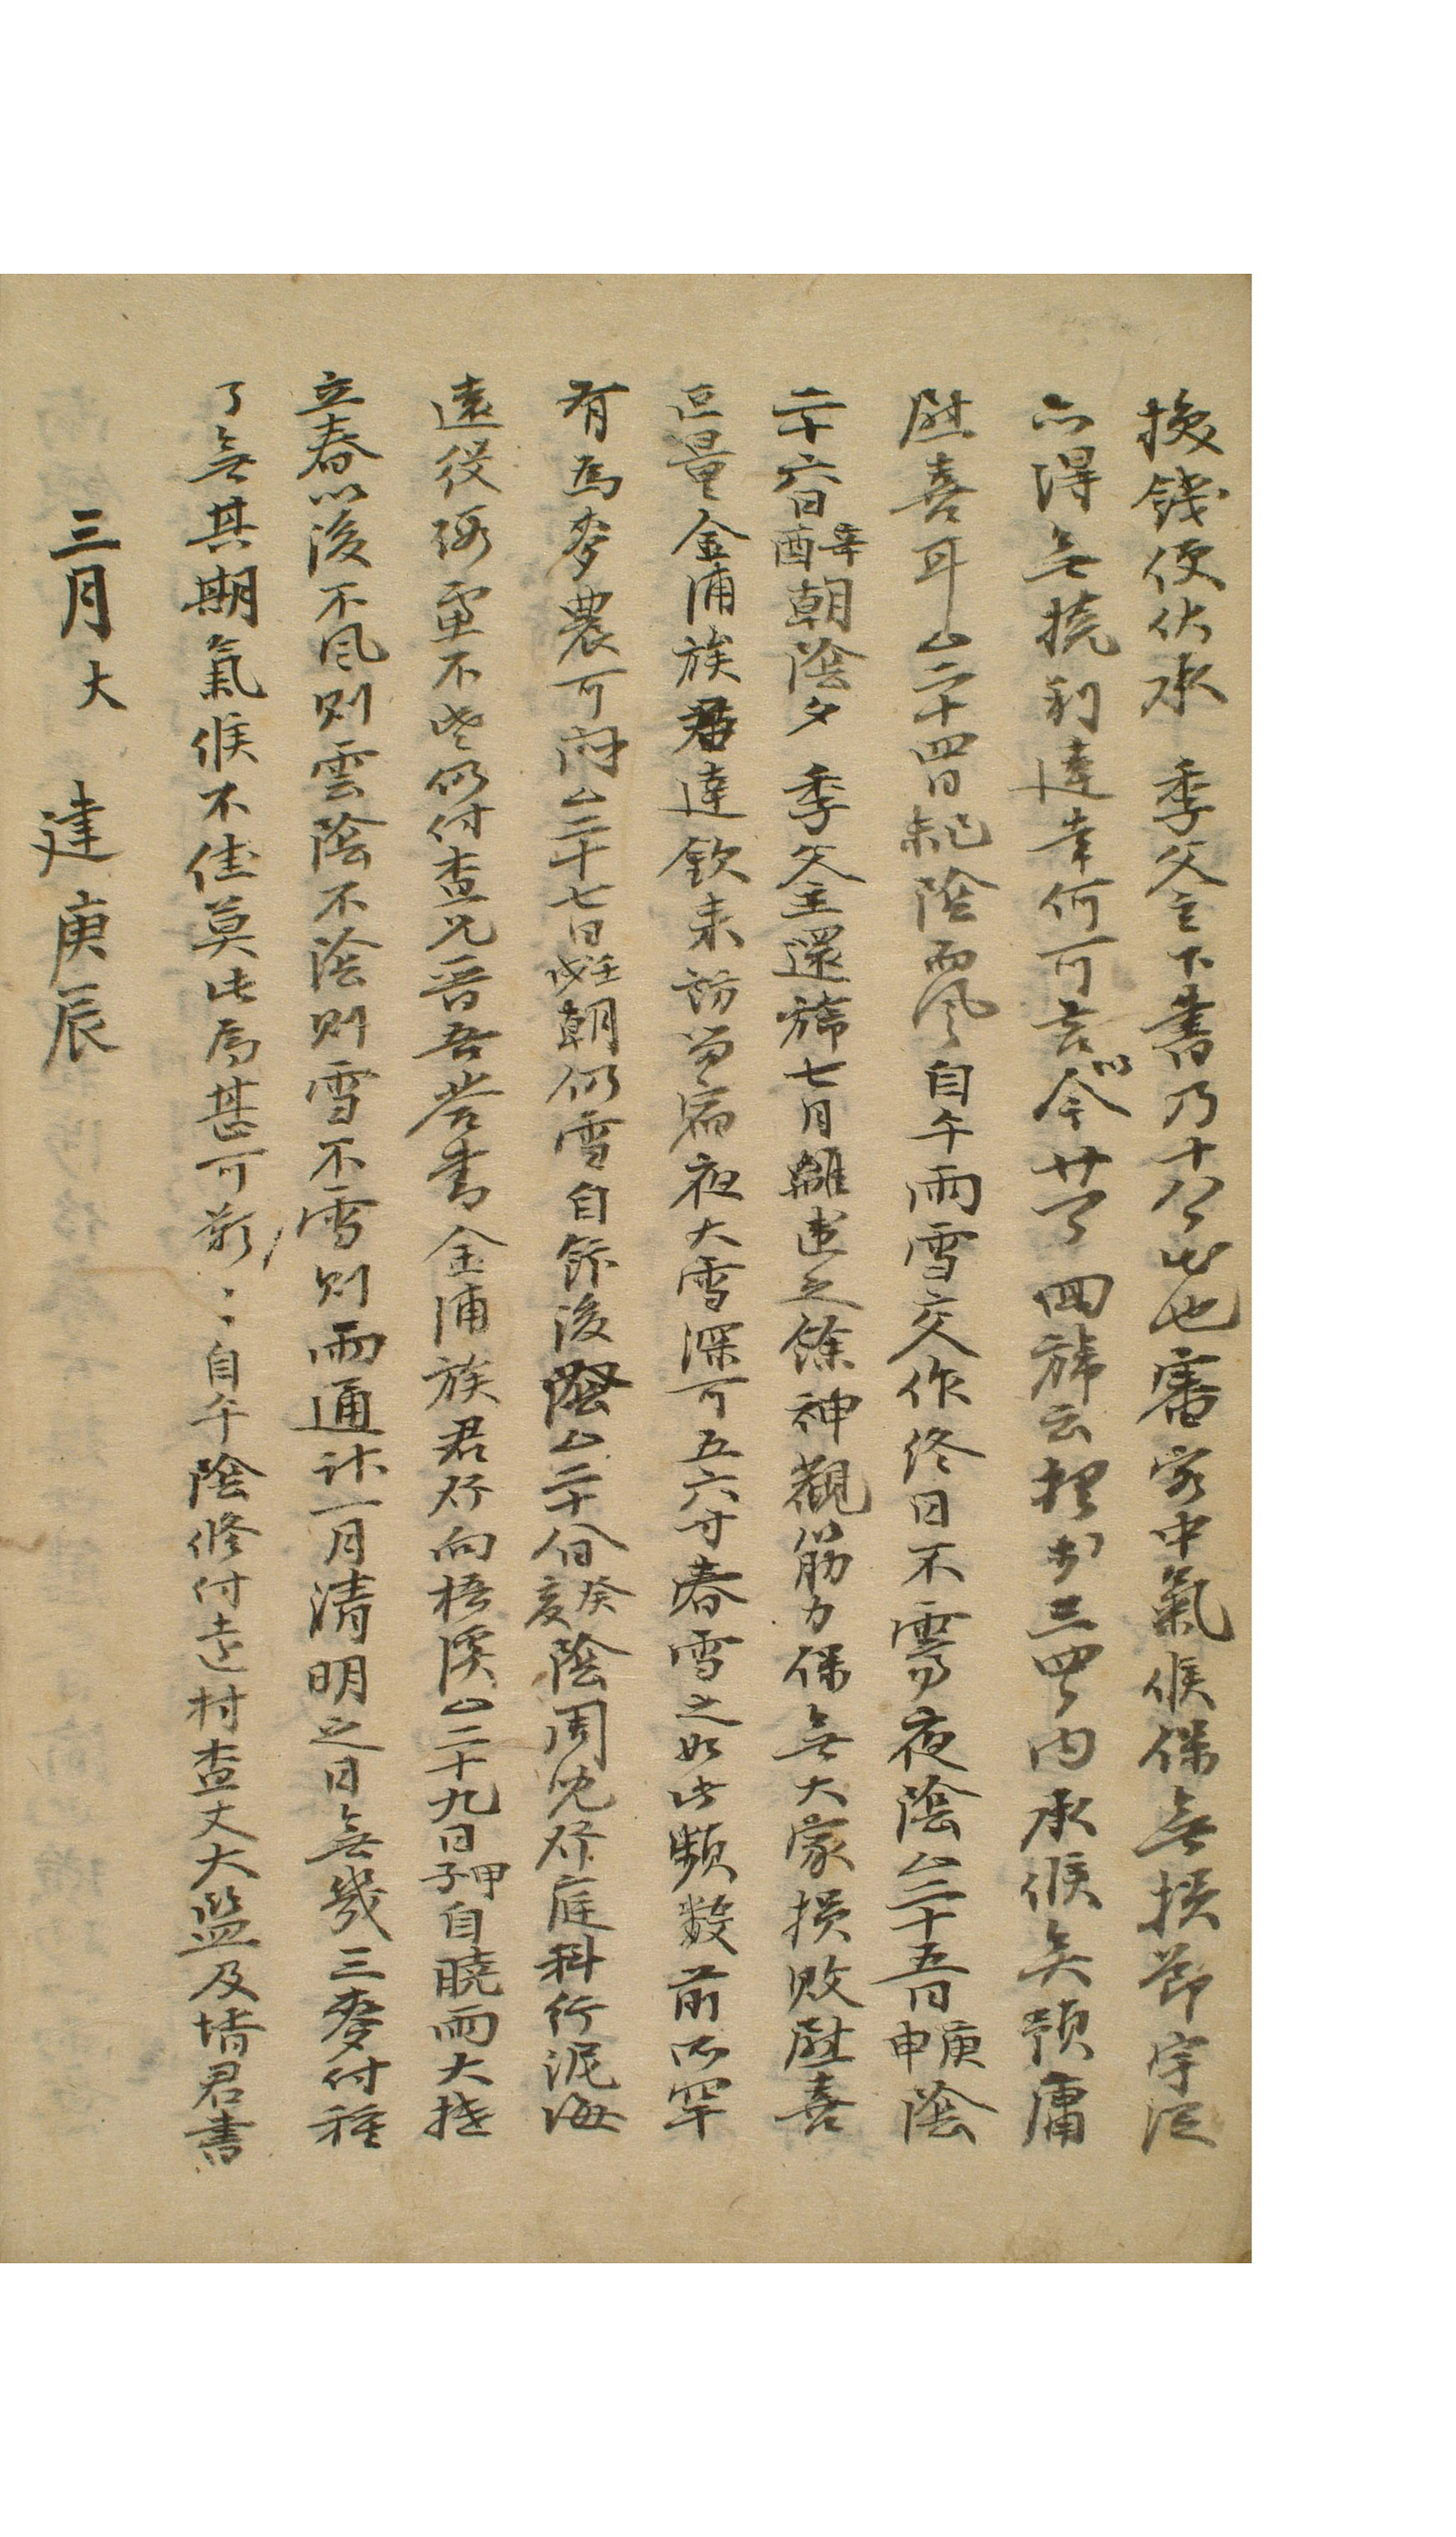 換錢便伏承 季父主下書乃十八日出也審客中氣候保無損節宇從
亦得無撓利達幸何可言以今廿八日 回旆云猶於三四日內承候矣預庸
慰喜耳△二十四日己未陰而風自午雨雪交作終日不霽夜陰△二十五日庚申陰
二十六日辛酉朝陰夕 季父主還旆七月離違之餘神觀筋力保無大家損敗慰喜
叵量金浦族君達欽來訪留宿夜大雪深可五六寸春雪之如此頻數前所罕
有爲麥農可悶△二十七日壬戌朝仍雪自飯後陰△二十八日癸亥陰周兄發庭科行泥海
遠役殊重不些仍付査兄晉吾答書金浦族君發向梧溪△二十九日甲子自曉雨大抵
立春以後不風則雲陰不陰則雪不雪則雨通計一月淸明之日無幾三麥付種
了無其期氣候不佳莫此爲甚可歎〻自午陰修付壺村査丈大監及壻君書
三月大 建庚辰